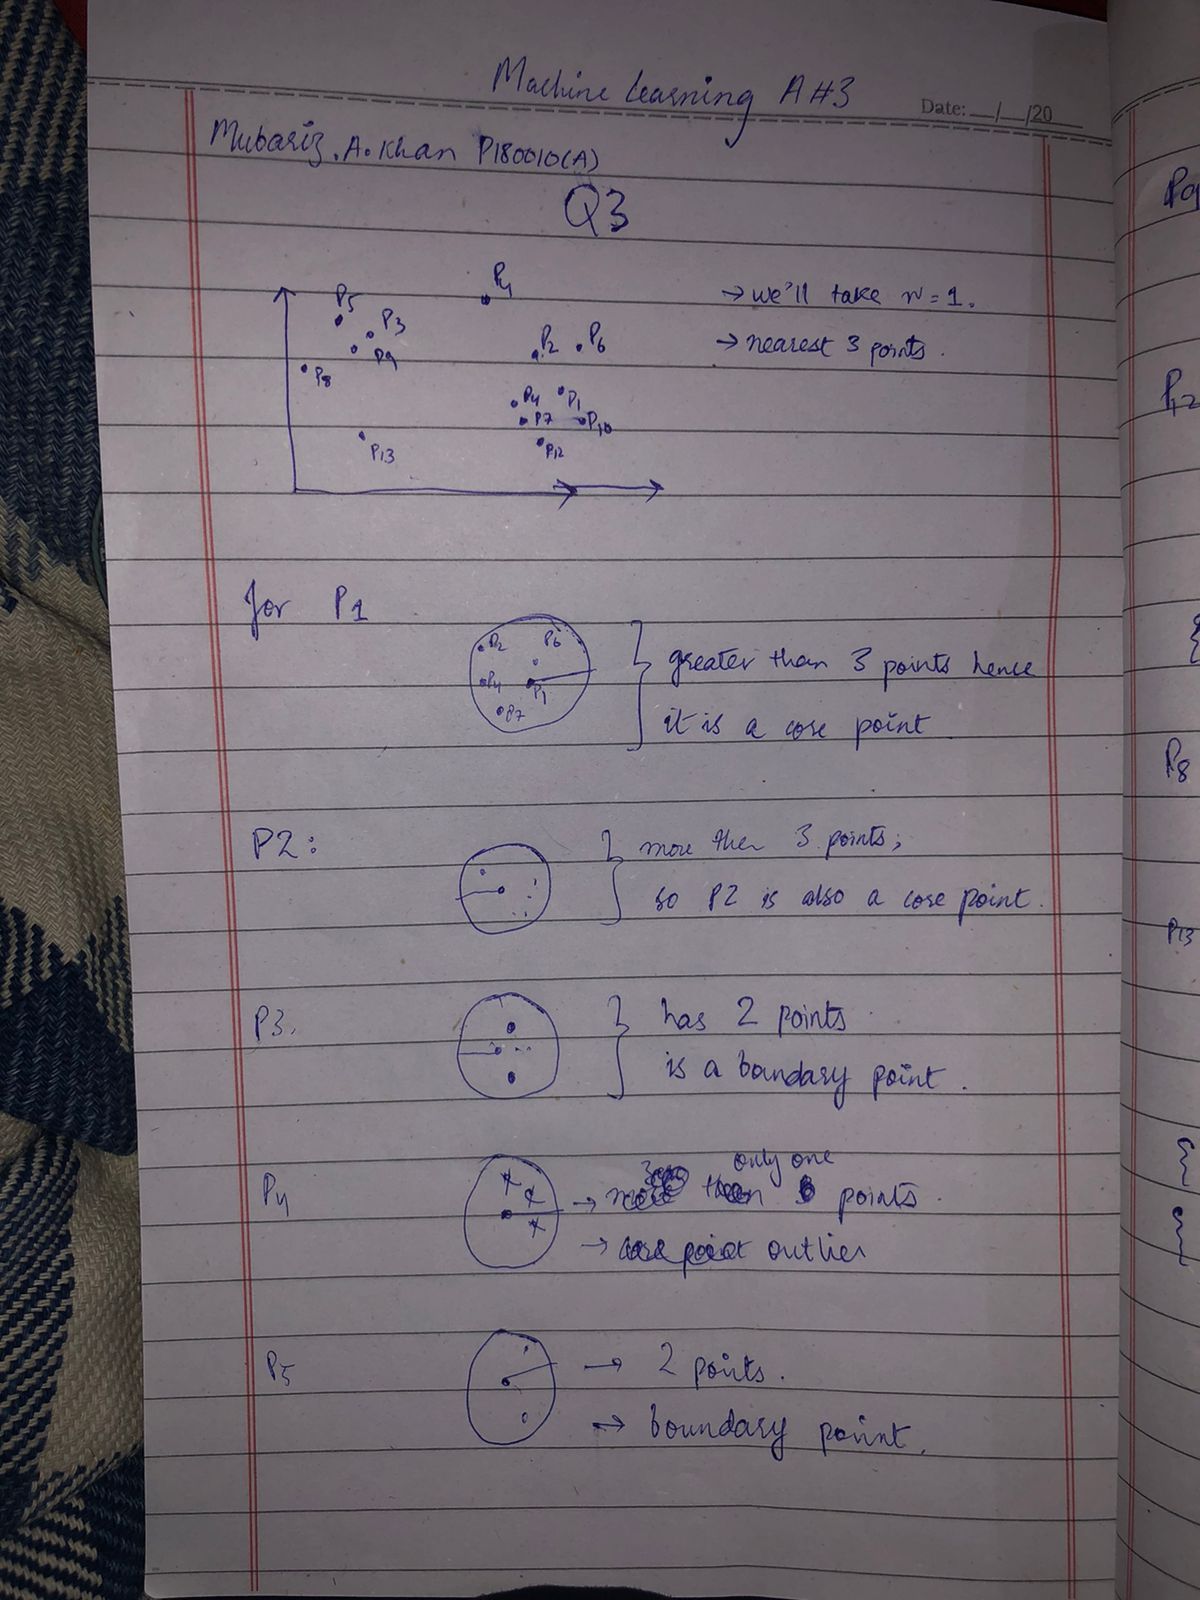 Machine Learning A#3
Date: __/__/20
Mubariz.A.Khan P180010(A)
Q3
P4
P5
P3
P9
P8
P2
P6
P4
P1
P7
P10
P12
P13
→ we'll take r = 1.
→ nearest 3 points.
for P1
P2
P6
P4
P1
P7
greater than 3 points hence
it is a core point
P2:
more then 3 points;
so P2 is also a core point.
P3.
has 2 points
is a boundary point.
P4
only one
→ points.
→ outlier
P5
→ 2 points.
→ boundary point.
P9
P12
P8
P13